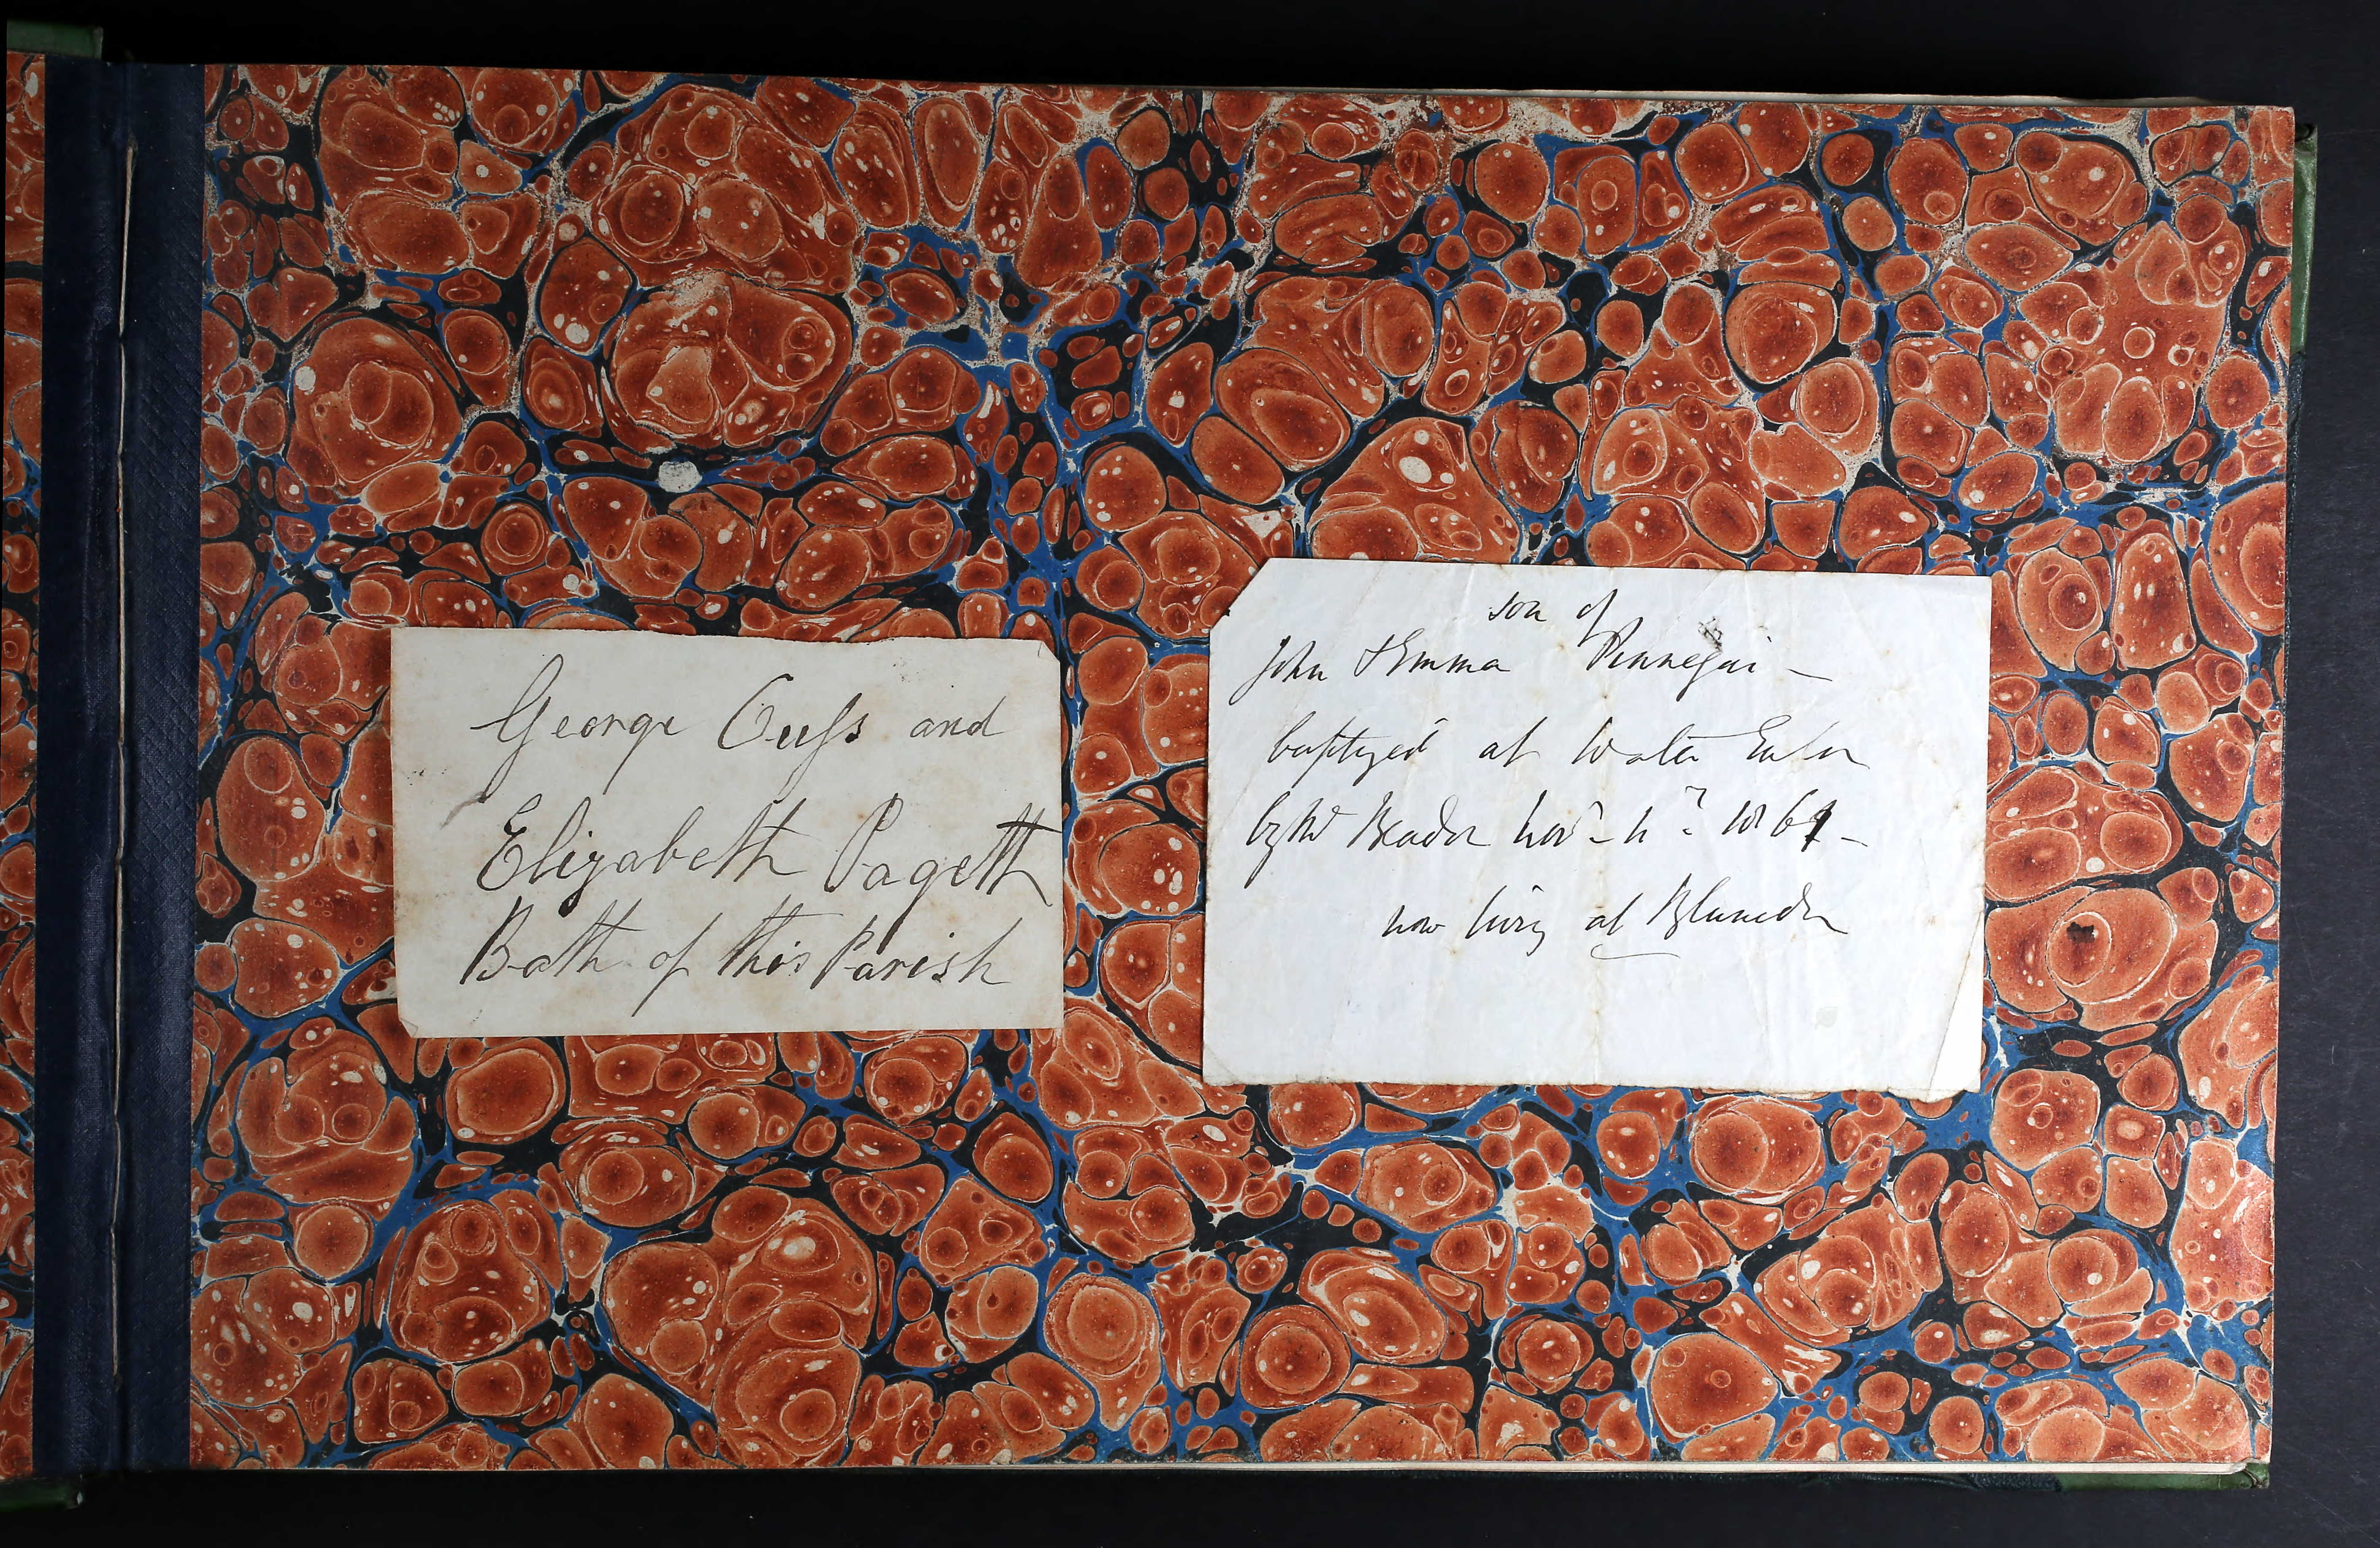 George Cuſs and
Elizabeth Pagett
Both of this Parish
son of
John & Emma Pinnegar –
baptized at Water Eaton
by Mr Reador Novr – 1861 –
now living at Blunsdon